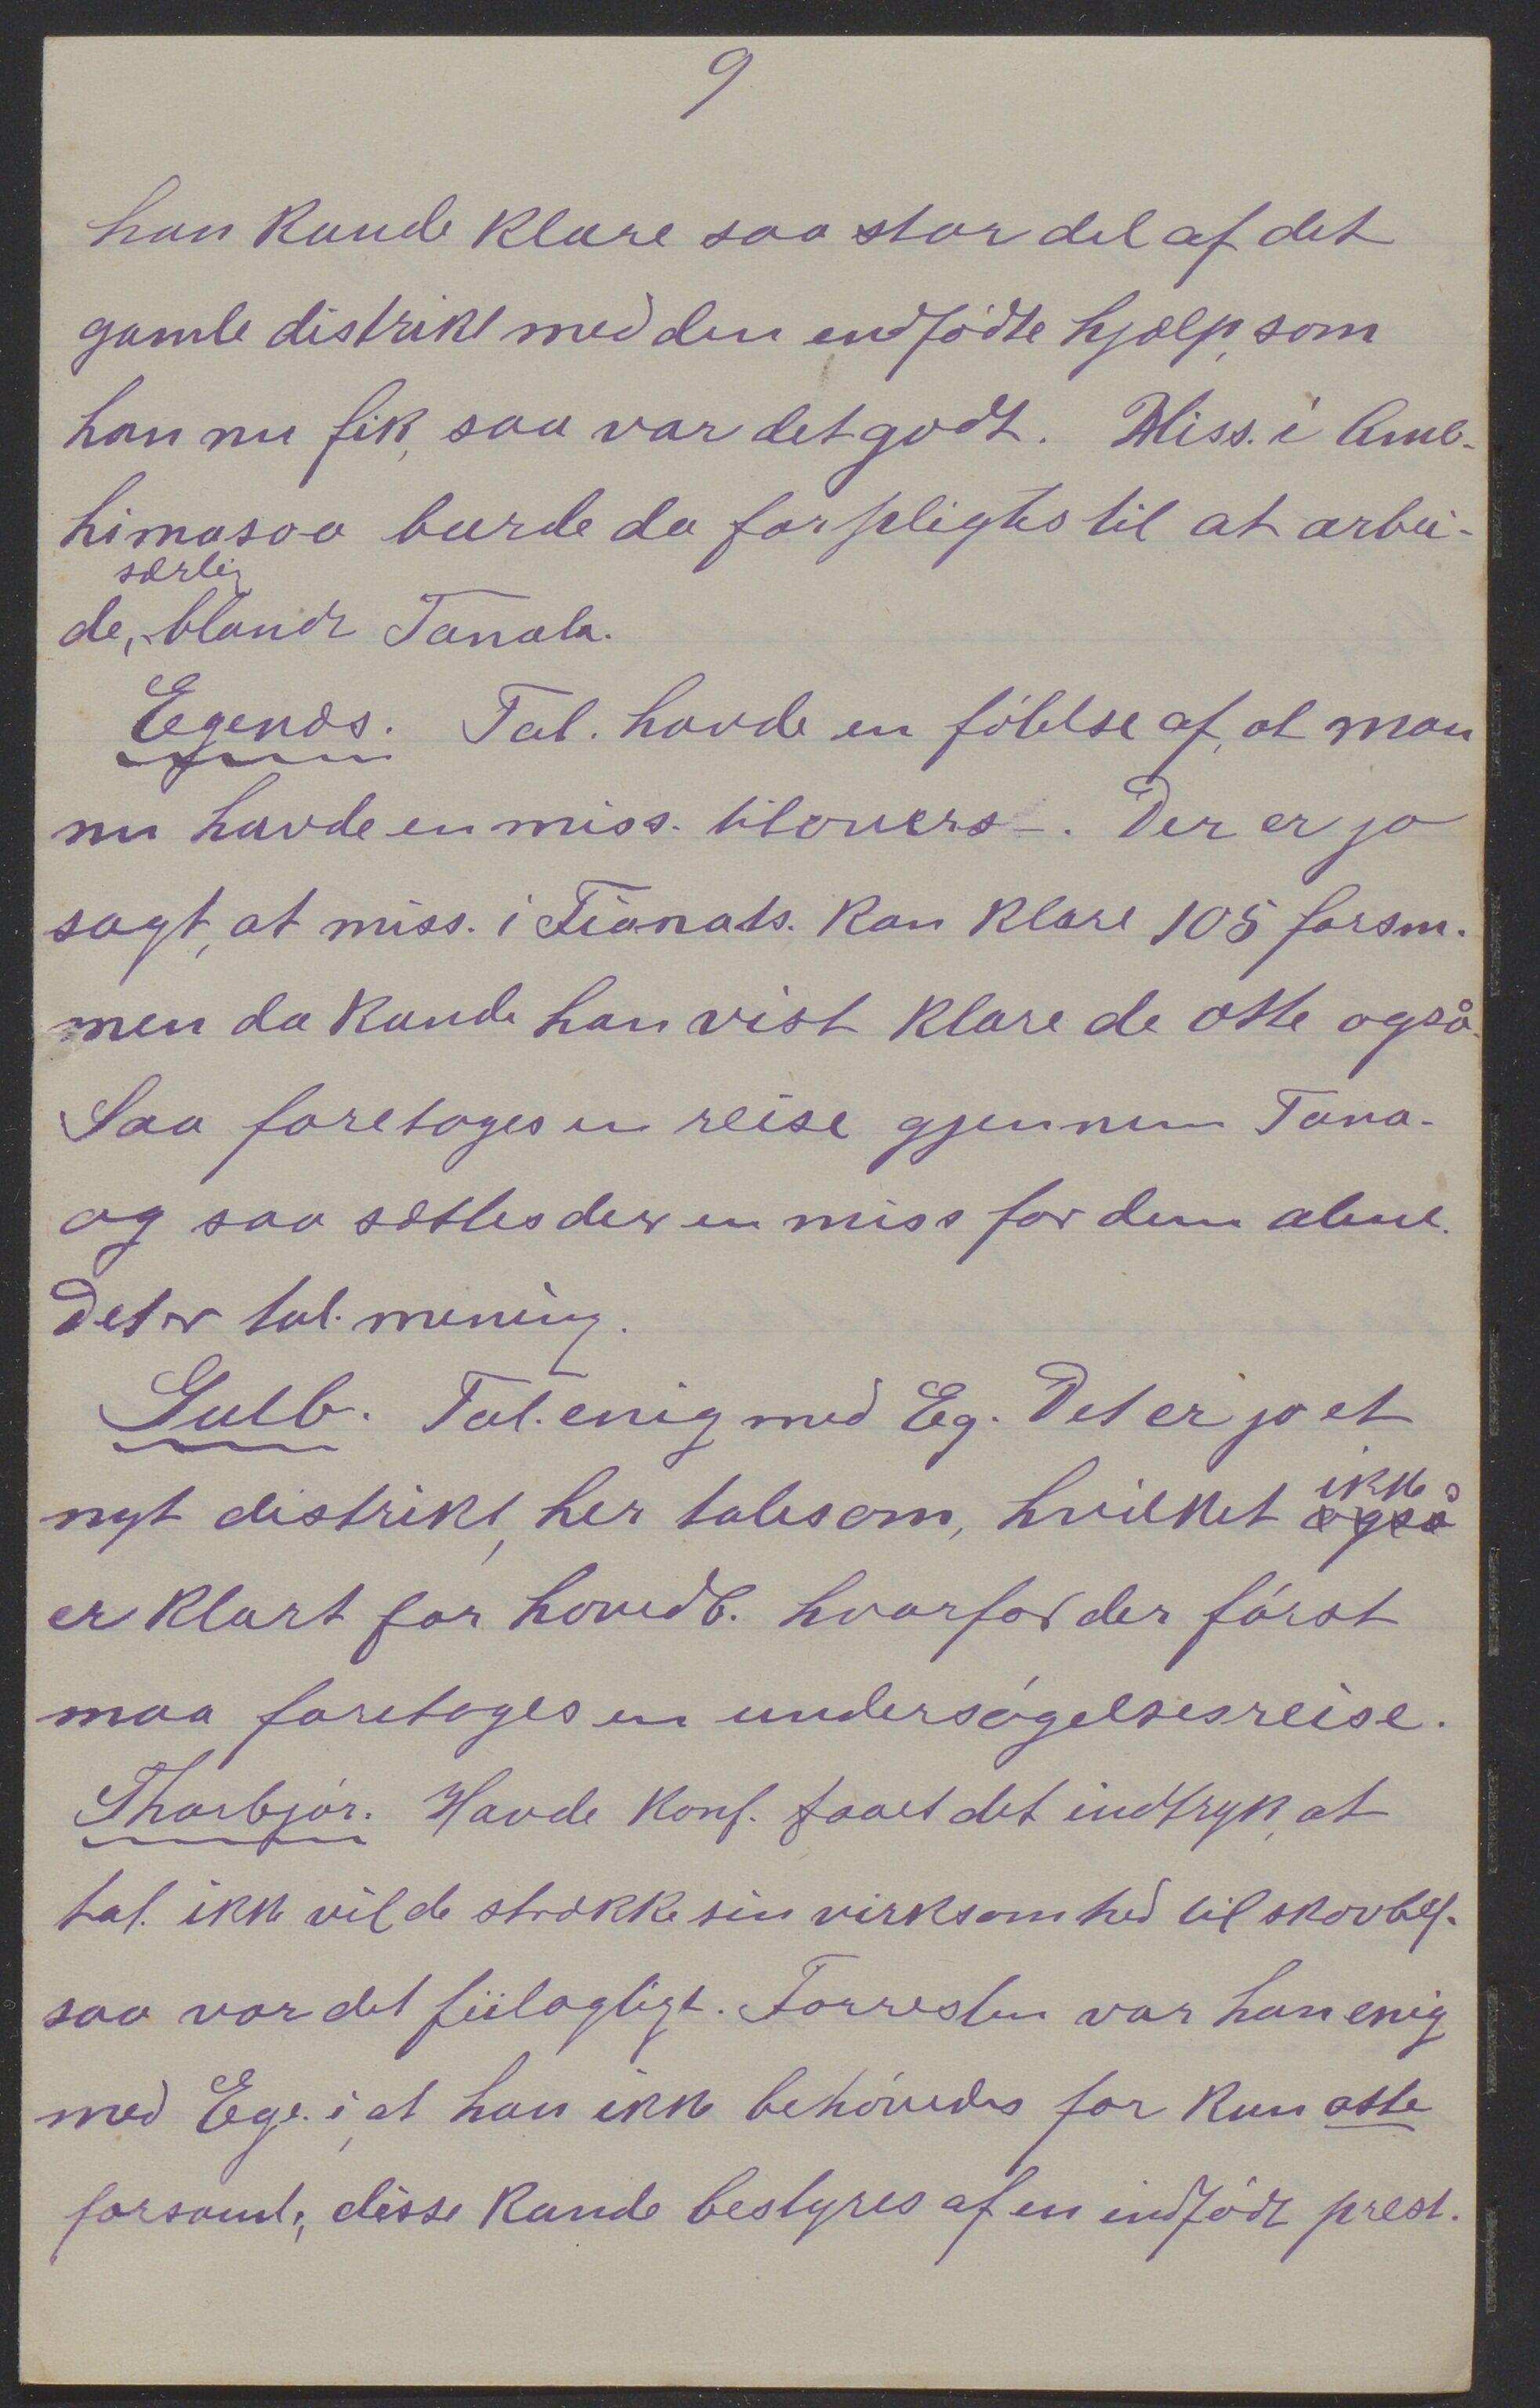 9
han kunde klare saa stor del af det
gamle distrikt med den endfödte hjælp, som
han nu fik, saa var det godt. Miss. i Amb-
himasoa burde da forpligtes til at arbei-
særlig
de, blandt Tanala.
Egenæs. Tal. havde en fölelse af, at man
nu havde en miss. tilovers-. Der er jo
sagt, at miss. i Fianats. kan klare 105 forsm.
men da kunde han vist klare de otte også.
Saa foretages en reise gjennem Tana-
og saa sættes der en miss for dem alene.
Det er tal. mening.
Gulb. Tal. enig med Eg. Det er jo et
nyt distrikt, her tales om, hvilket ikke også
er klart for hovedb. hvorfor der först
maa foretages en undersögelsesreise.
Thorbjör. Havde konf. faaet det indtryk, at
tal. ikke vilde strække sin virksomhed til skovbef.
saa var det feilagtigt. Forresten var han enig
med Ege. i, at han ikke behövedes for kun otte
forsaml., disse kunde bestyres af en indfödt prest.